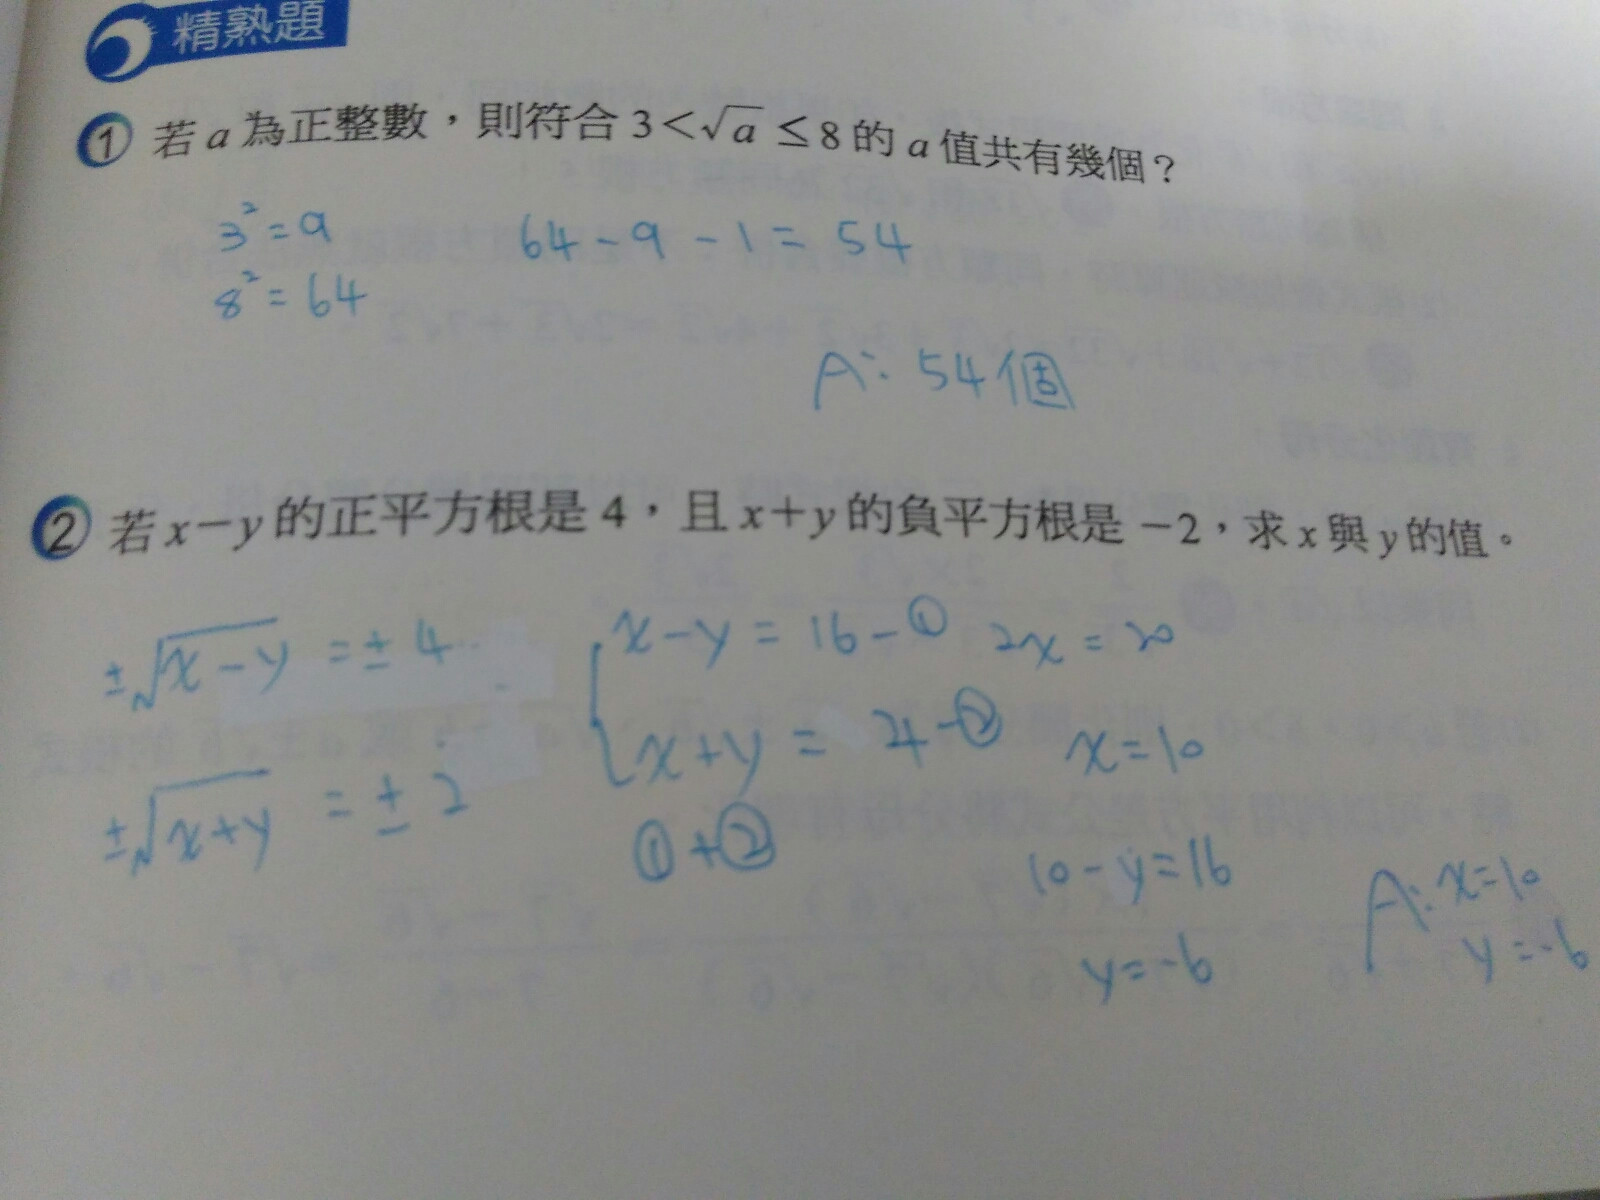 精熟題
① 若 a 為正整數，則符合 3<√a ≤8 的 a 值共有幾個？
3²=9
8²=64
64-9-1=54
A: 54個
② 若 x－y 的正平方根是 4，且 x＋y 的負平方根是 －2，求 x 與 y 的值。
±√x-y =±4
±√x+y =±2
x-y=16-①
x+y=4-②
①+②
2x=20
x=10
10-y=16
y=-6
A: x=10
y=-6